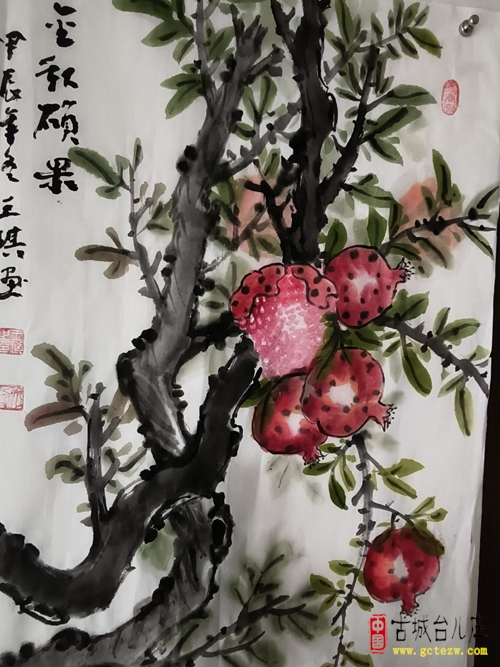 金秋碩果
甲辰年冬王琪画
中国
古城台儿庄
www.gctezw.com